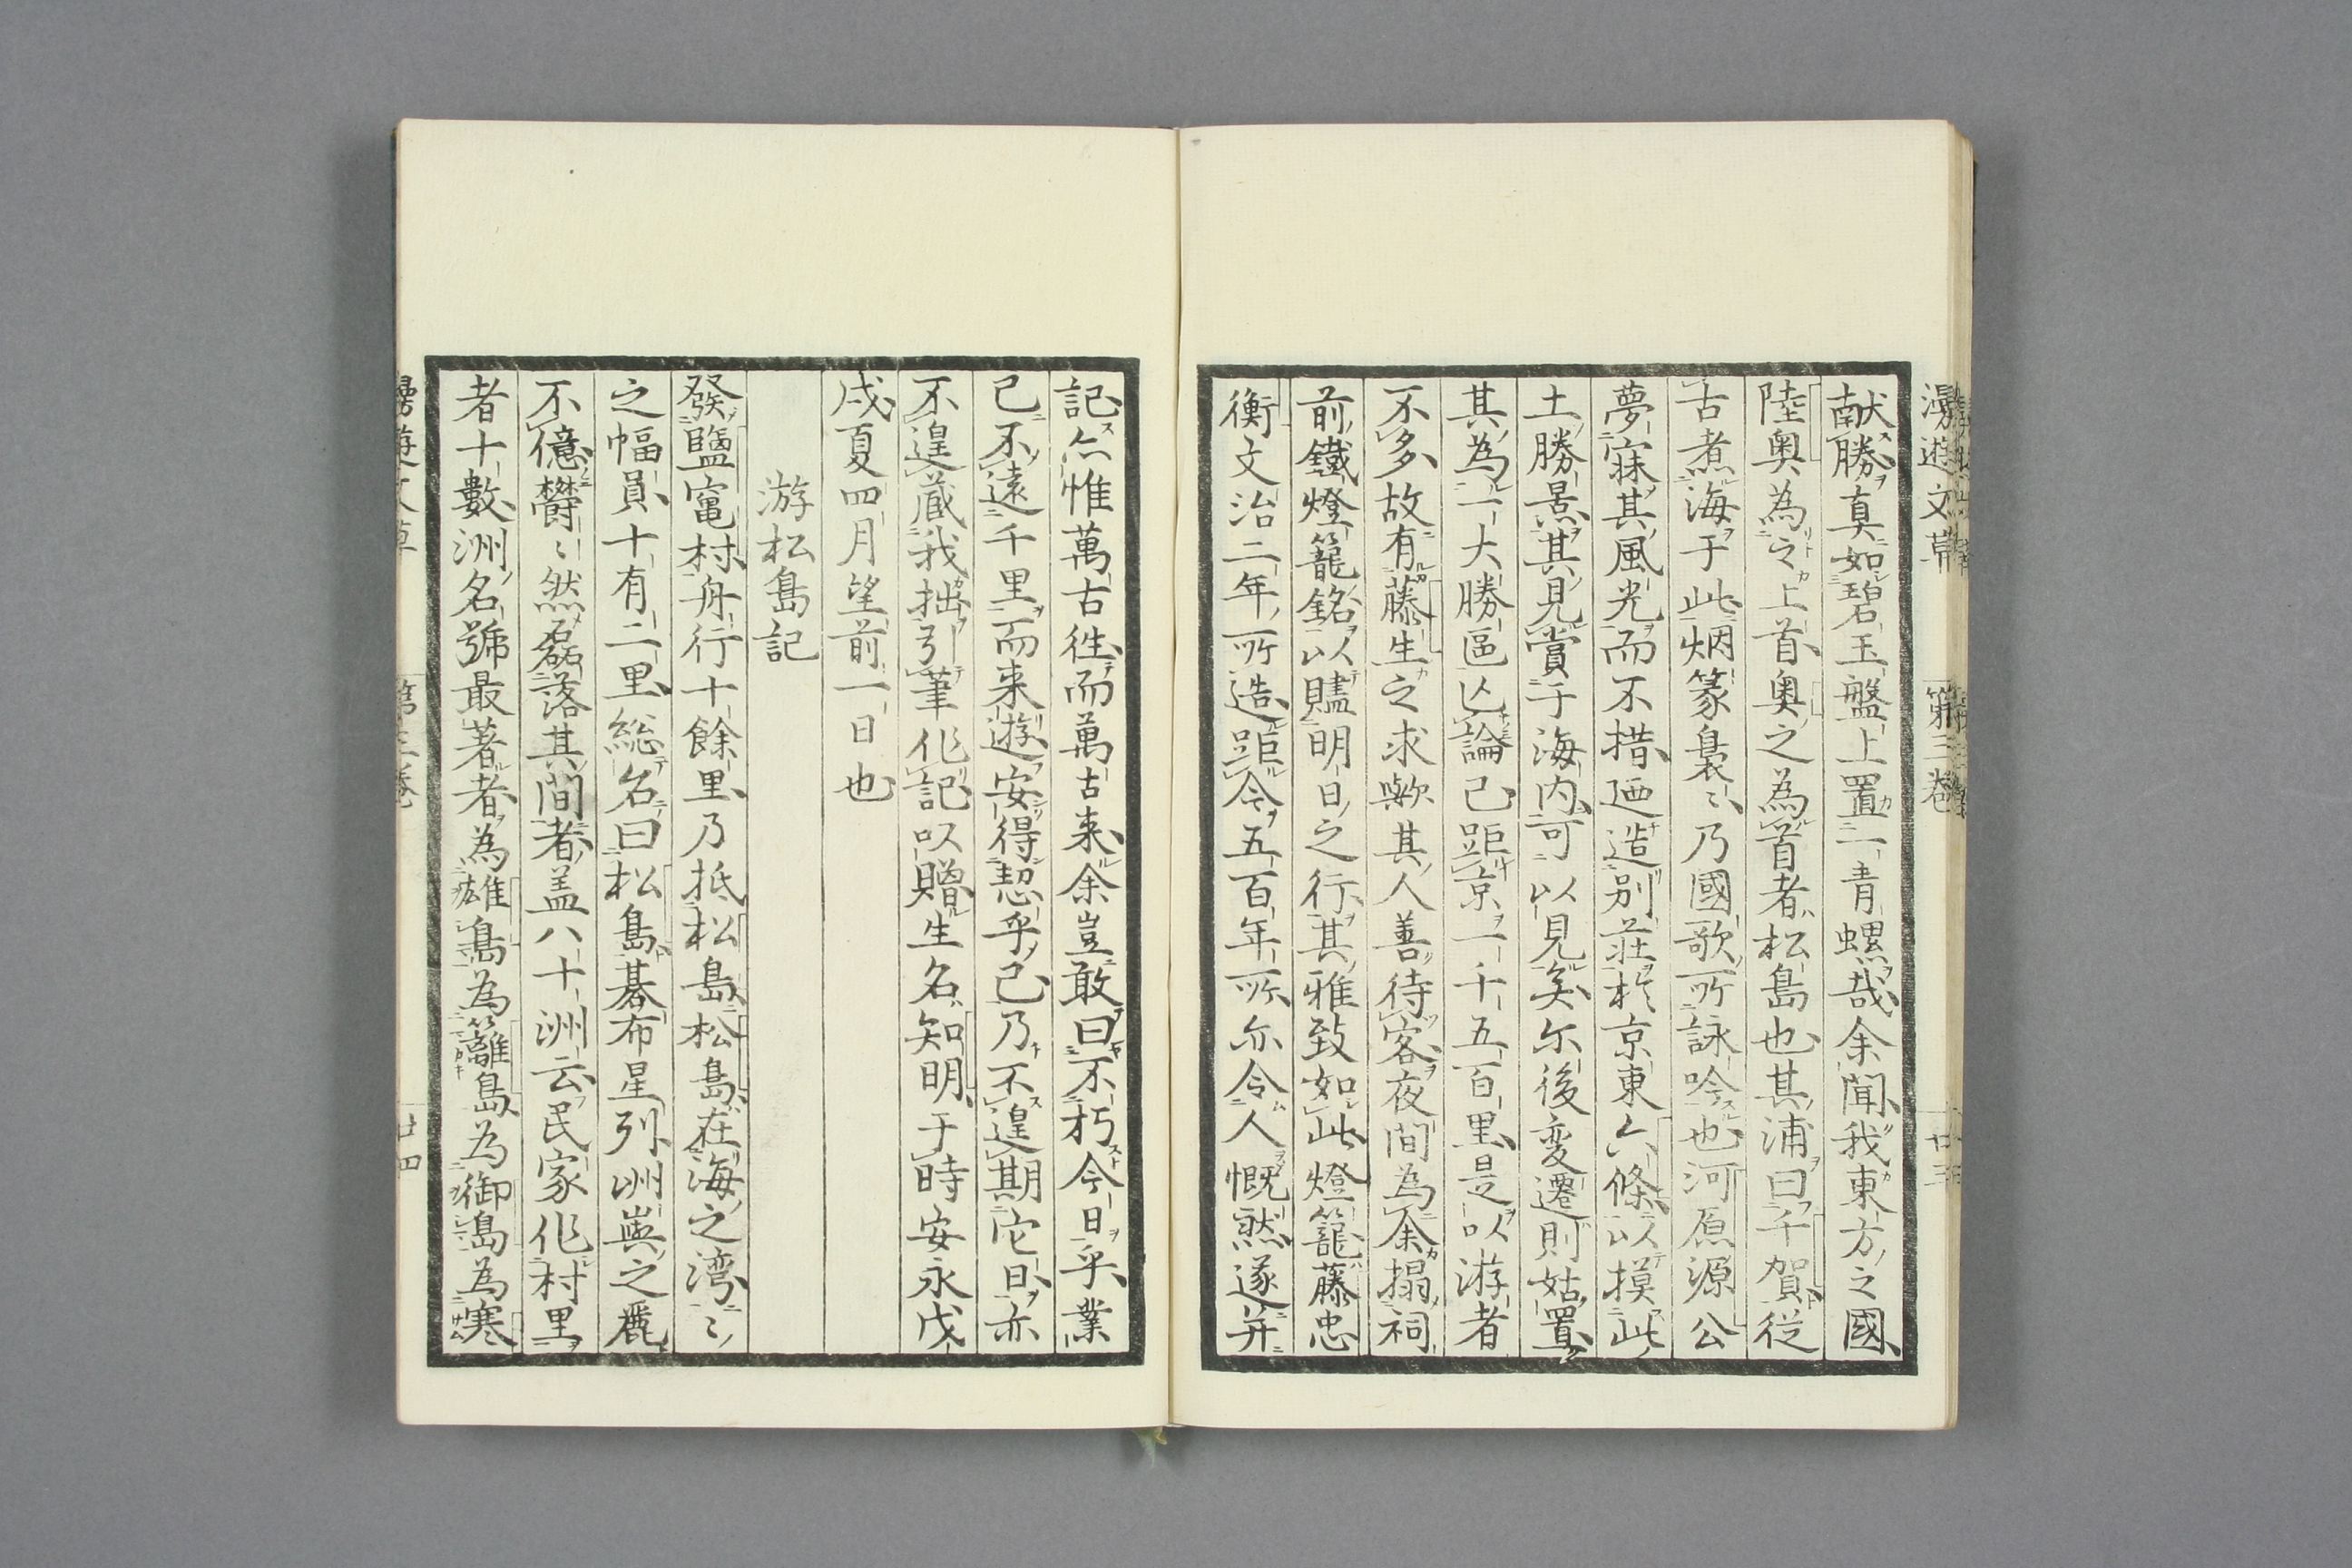 漫遊文草 第三卷 廿三
献勝真如碧玉盤上置一青螺哉余聞我東方之國
陸奥為之上首奥之為首者松島也其浦曰千賀従
古煮海于此烟篆裊〻乃國歌所詠吟也河原源公
夢寐其風光而不措廼造別莊於京東六條以摸此
土勝景其見賞于海内可以見矣尓後変遷則姑置
其為一大勝區亾論已距京一千五百里是以游者
不多故有藤生之求歟其人善待客夜間為余搨祠
前鐵燈籠銘以贐明日之行其雅致如此燈籠藤忠
衡文治二年所造距今五百年所尓令人慨然遂并
記亽惟萬古徃而萬古来余豈敢曰不朽今日乎業
已不遠千里而来遊安得恝乎已乃不遑期它日亦
不遑蔵我拙引筆作記以贈生名知明于時安永戊
戌夏四月望前一日也
游松島記
發鹽竃村舟行十餘里乃抵松島松島在海之湾〻
之幅員十有二里総名曰松島碁布星列洲嶼之麗
不億欝〻然磊落其間者盖八十洲云民家作村里
者十數洲名號最著者為雄島為籬島為御島為寒
第三卷 廿四